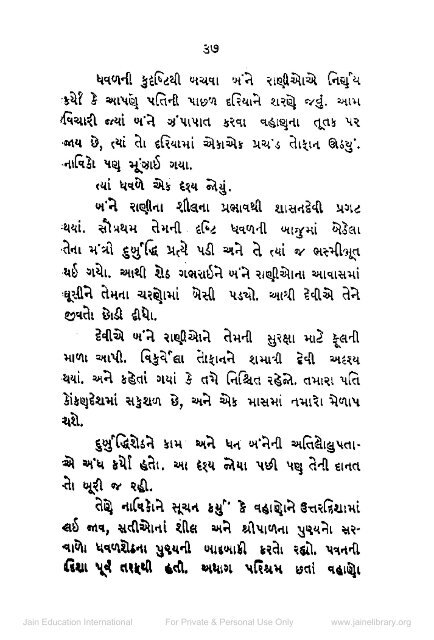 ૩૭
ધવળની કુદૃષ્ટિથી બચવા બંને રાણીઓએ નિર્ણય
કર્યો કે આપણે પતિની પાછળ દરિયાને શરણે જવું. આમ
વિચારી જ્યાં બંને ઝંપાપાત કરવા વહાણના તૂતક પર
જાય છે, ત્યાં તો દરિયામાં એકાએક પ્રચંડ તોફાન ઊઠયું.
નાવિકો પણ મૂંઝાઈ ગયા.
ત્યાં ધવળે એક દૃશ્ય જોયું.
બંને રાણીના શીલના પ્રભાવથી શાસનદેવી પ્રગટ
થયાં. સૌપ્રથમ તેમની દૃષ્ટિ ધવળની બાજુમાં બેઠેલા
તેના મંત્રી દુર્બુદ્ધિ પ્રત્યે પડી અને તે ત્યાં જ ભસ્મીભૂત
થઈ ગયો. આથી શેઠ ગભરાઈને બંને રાણીઓના આવાસમાં
ઘૂસીને તેમના ચરણોમાં બેસી પડયો. આથી દેવીએ તેને
જીવતો છોડી દીધો.
દેવીએ બંને રાણીઓને તેમની સુરક્ષા માટે ફૂલની
માળા આપી. વિકુર્વેલા તોફાનને શમાવી દેવી અદૃશ્ય
થયાં. અને કહેતાં ગયાં કે તમે નિશ્ચિત રહેજો. તમારા પતિ
કોંકણદેશમાં સકુશળ છે, અને એક માસમાં તમારો મેળાપ
થશે.
દુર્બુદ્ધિશેઠને કામ અને ધન બંનેની અતિલોલુપતા-
એ અંધ કર્યો હતો. આ દૃશ્ય જોયા પછી પણ તેની દાનત
તો બૂરી જ રહી.
તેણે નાવિકોને સૂચન કર્યું કે વહાણોને ઉત્તરદિશામાં
લઈ જાવ, સતીઓનાં શીલ અને શ્રીપાળના પુણ્યનો સર-
વાળો ધવળશેઠના પુણ્યની બાદબાકી કરતો રહ્યો. પવનની
દિશા પૂર્વ તરફથી હતી. અથાગ પરિશ્રમ છતાં વહાણો
Jain Education International For Private & Personal Use Only www.jainelibrary.org